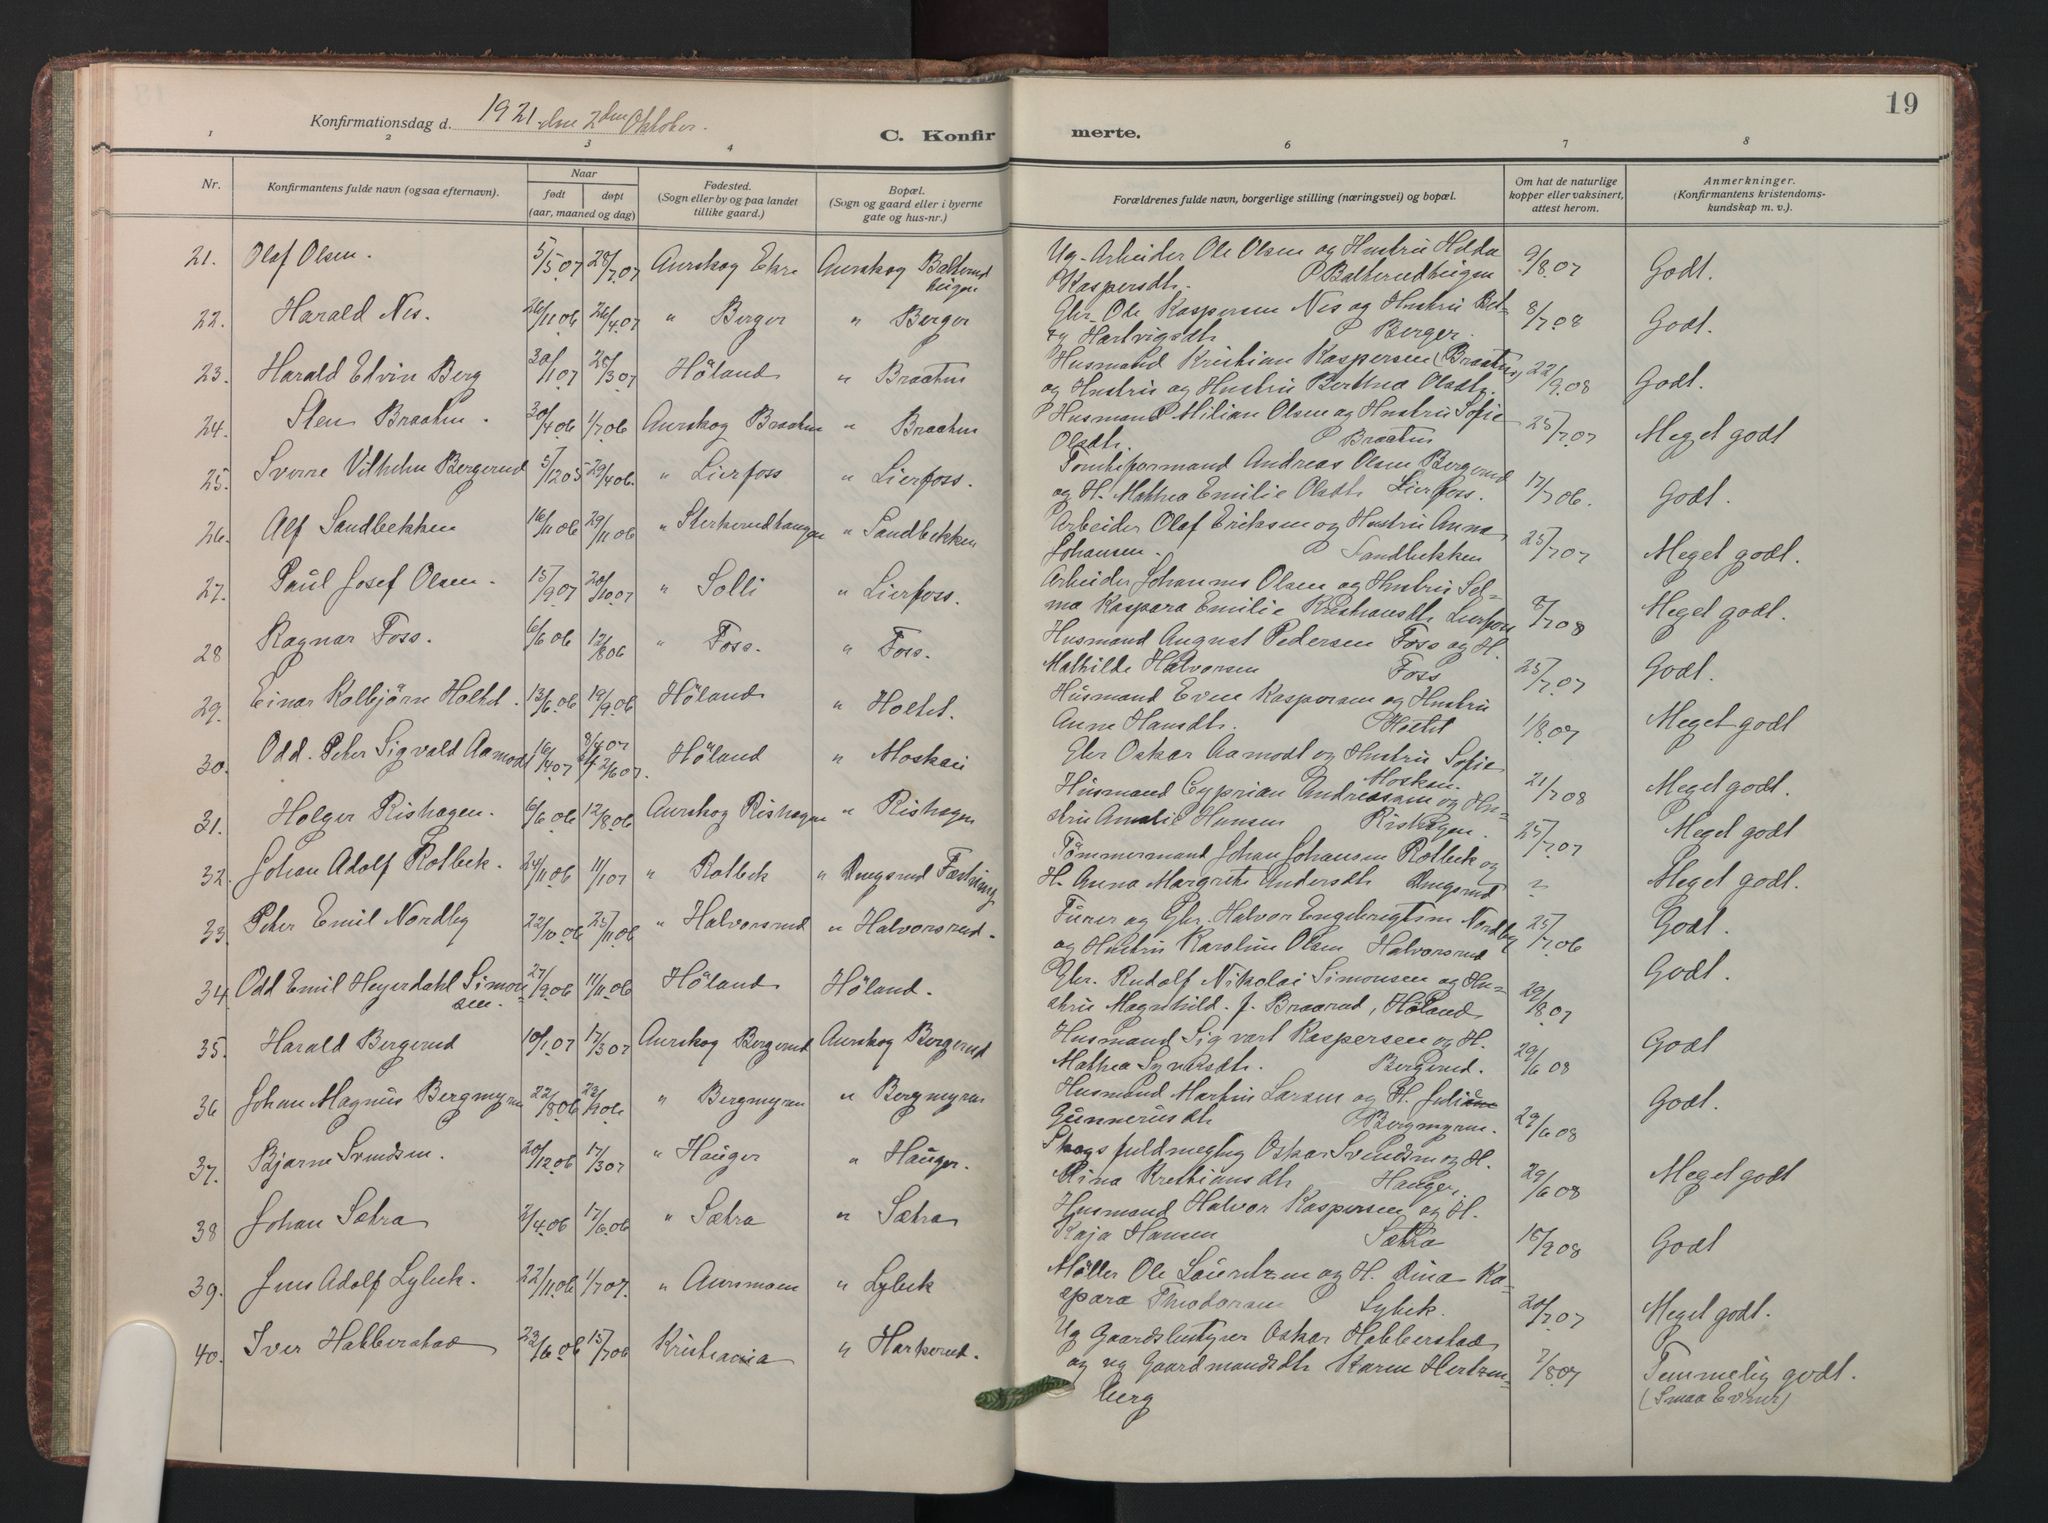 19
Konfirmationsdag d. 1921 den 2den Oktober.
C. Konfirmerte.
1 2 3 4 5 6 7 8
Nr.
Konfirmantens fulde navn (ogsaa efternavn).
Naar
født døpt
(aar, maaned og dag)
Fødested.
(Sogn eller by og paa landet
tillike gaard.)
Bopæl.
(Sogn og gaard eller i byerne
gate og hus-nr.)
Forældrenes fulde navn, borgerlige stilling (næringsvei) og bopæl.
Om hat de naturlige
kopper eller vaksinert,
attest herom.
Anmerkninger.
(Konfirmantens kristendoms-
kundskap m. v.).
21. Olaf Olsen. 5/5.07 28/7.07 Aurskog Ekre Aurskog Balterud
heigen
Ug. Arbeider Ole Olsen og Hustru Hilda
Kaspersdtr. Balterudheigen 9/8.07 Godt.
22. Harald Nes. 26/11.06 26/4.07 " Berger " Berger
Gbr. Ole Kaspersen Nes og Hustru Bet-
zy Hartvigsdtr. Berger. 8/7.08 Godt.
23. Harald Edvin Berg 30/1.07 28/3.07 Höland " Braaten
Husmand Kristian Kaspersen (Braaten)
og Hustru og Hustru Berthea Olsdtr. 22/9.08 Godt.
24. Sten Braaten. 30/4.06 1/7.06 Aurskog Braaten " Braaten
Husmand Milian Olsen og Hustru Sofie
Olsdtr. Braaten 25/7.07 Meget godt
25. Sverre Vilhelm Bergerud 5/12.05 29/4.06. " Lierfoss " Lierfoss.
Tomteformand Andreas Olsen Bergerud
og H. Mathea Emilie Olsdtr. Lierfoss. 17/7.06. Godt.
26. Alf Sandbekken 16/11.06 29/11.06 " Sterkerudhaugen " Sandbekken
Arbeider Olaf Eriksen og Hustru Anna
Johansen. Sandbekken 25/7.07 Meget godt.
27. Paul Josef Olsen. 15/9.07 20/10.07 " Solli " Lierfoss.
Arbeider Johannes Olsen og Hustru Sel-
ma Kaspara Emilie Kristiansdtr. Lierfoss 8/7.08 Meget godt.
28 Ragnar Foss. 6/6.06 12/8.06 " Foss. " Foss.
Husmand August Pedersen Foss og H.
Mathilde Halvorsen Foss 25/7.07 Godt.
29. Einar Kolbjörn Holtet. 13/6.06 19/9.06 Höland " Holtet.
Husmand Even Kaspersen og Hustru
Anne Hansdtr. Holtet 1/8.07 Meget godt
30. Odd. Peter Sigvald Aamodt 16/4.07 2/6.07. Höland " Mosken
Gbr Oskar Aamodt og Hustru Sofie
Mosken. 21/7.08 Meget godt.
31. Holger Rishagen. 6/6.06 12/8.06 Aurskog Rishagen " Rishagen
Husmand Cyprian Andreassen og Hu-
stru Amalie Hansen Rishagen. 25/7.07 Meget godt
32. Johan Adolf Rotbek. 24/11.06 1/1.07 " Rotbek " Dingsrud Fastning
Tømmermand Johan Johansen Rotbek og
H. Anna Margrete Andersdtr. Dingsrud ? Meget godt.
33. Peter Emil Nordby 22/10.06 25/11.06 " Halvorsrud " Halvorsrud.
Furer og Gbr. Halvor Engebregtsen Nordby
og Hustru Karoline Olsen Halvorsrud 25/7.06 Godt.
34. Odd Emil Heyerdahl Simon
sen. 27/9.06 11/11.06 Höland Höland.
Gbr. Rudolf Nikolai Simonsen og Hu-
stru Magnhild. f. Braarud, Höland 29/8.07 Godt.
35. Harald Bergerud 10/1.07 17/3.07 Aurskog Bergerud Aurskog Bergerud
Husmand Sigvart Kaspersen og H.
Mathea Syversdtr. Bergerud. 29/6 08 Godt
36 Johan Magnus Bergmyren 22/8.06 23/9.06 " Bergmyren " Bergmyren
Husmand Martin Larsen og H. Juliane
Gunnerusdtr Bergmyren. 29/6 08 Godt.
37. Bjarne Svendsen. 20/12.06 17/3.07 " Hauger " Hauger.
Skogsfuldmegtig Oskar Svendsen og H.
Mina Kristiansdtr. Hauger. 29/6 08 Meget godt
38 Johan Sætra 2/4.06 17/6.06 " Sætra " Sætra
Husmand Halvor Kaspersen og H.
Kaja Hansen Sætra 18/9.08 Godt
39. Jens Adolf Lybek. 22/11.06 1/7.07. " Aursmoen " Lybek
Møller Ole Lauritzen og H. Dina Ka-
spara Theodorsen Lybek. 20/7.07 Meget godt.
40. Iver Habberstad 23/6.06 15/7.06 Kristiania " Harkerud.
Ug Gaardsbestyrer Oskar Habberstad
og ug Gaardmandsdtr. Karen Hertzen-
berg 7/8.07 Temmelig godt.
(Smaa Evner)